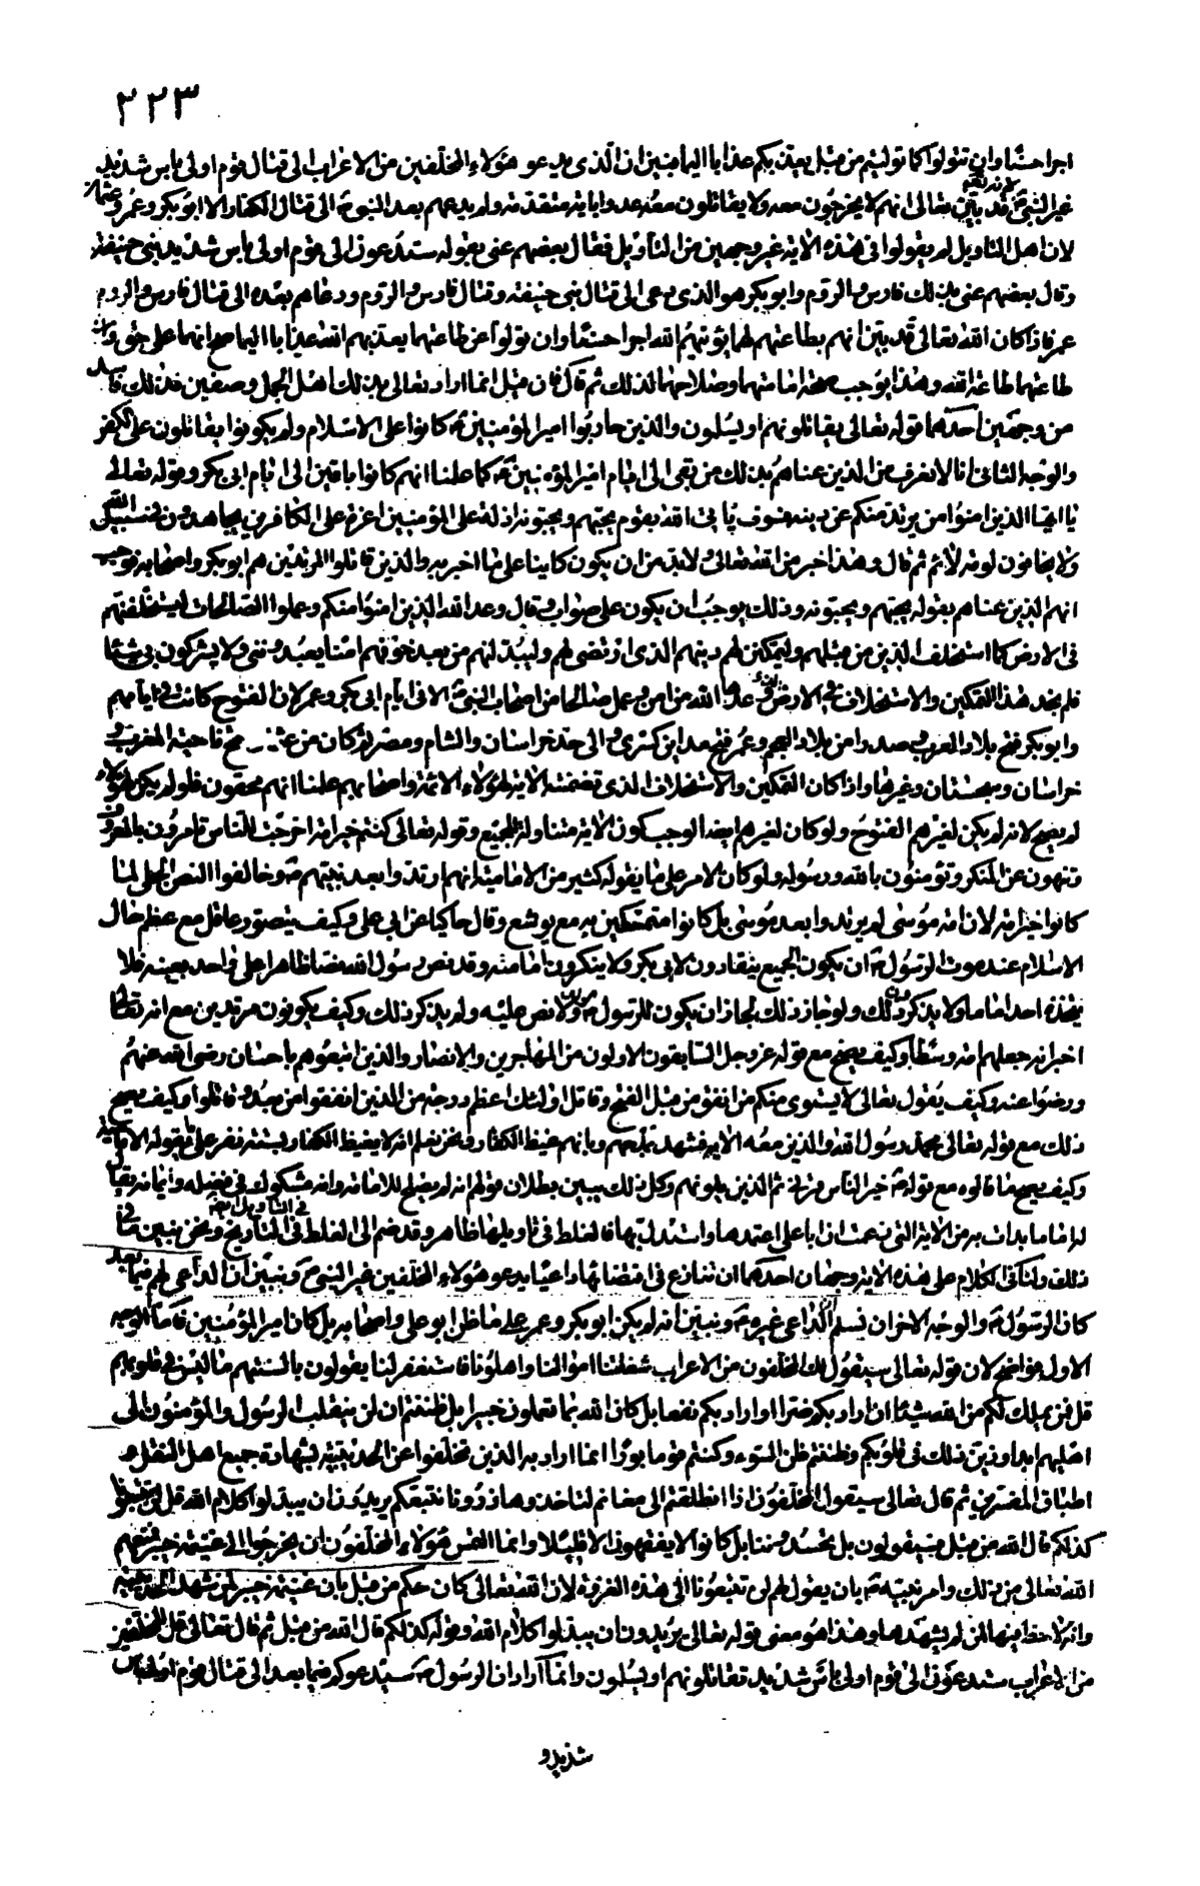 ٣٢٣
اجرا حسنا وان تتولوا كما توليتم من قبل يعذبكم عذابا اليما فبين ان الذى يدعو هؤلاء المخلفين من الاعراب الى قتال قوم اولى باس شديد
غير النبى ص قد بين تعالى انهم لا يخرجون معه ولا يقاتلون معه عدوا باية متقدمة ولم يدعهم بعد النبى ص الى قتال الكفار الا ابو بكر وعمر وعثمان
لان اهل التاويل لم يقولوا فى هذه الاية غير وجهين من التاويل فقال بعضهم عنى بقوله ستدعون الى قوم اولى باس شديد بنى حنيفة
وقال بعضهم عنى بذلك فارس والروم وابو بكر هو الذى دعى الى قتال بنى حنيفة وقتال فارس والروم ودعاهم بعده الى قتال فارس والروم
عمر فاذا كان الله تعالى قد بين انهم بطاعتهم لهما يؤتيهم الله اجرا حسنا وان تولوا عن طاعتهما يعذبهم الله عذابا اليما صح انهما على حق وان
طاعتهما طاعة الله وهذا يوجب صحة امامتهما وصلاحهما لذلك ثم قال فان قيل انما اراد تعالى بذلك اهل الجمل وصفين فذلك فاسد
من وجهين احدهما قوله تعالى يقاتلونهم او يسلمون والذين حاربوا امير المؤمنين ع كانوا على الاسلام ولم يكونوا يقاتلون على الكفر
والوجه الثانى انا لا نعرف من الذين عناهم بذلك من بقى الى ايام امير المؤمنين ع كما علمنا انهم كانوا باقين الى ايام ابى بكر وقوله تعالى
يا ايها الذين امنوا من يرتد منكم عن دينه فسوف ياتى الله بقوم يحبهم ويحبونه اذلة على المؤمنين اعزة على الكافرين يجاهدون فى سبيل الله
ولا يخافون لومة لائم ثم قال وهذا خبر من الله تعالى ولا بد من ان يكون كاينا على ما اخبر به والذين قاتلوا المرتدين هم ابو بكر واصحابه فوجب
انهم الذين عناهم بقوله يحبهم ويحبونه وذلك يوجب ان يكون على صواب وقال وعد الله الذين امنوا منكم وعملوا الصالحات ليستخلفنهم
فى الارض كما استخلف الذين من قبلهم وليمكنن لهم دينهم الذى ارتضى لهم وليبدلنهم من بعد خوفهم امنا يعبدوننى ولا يشركون بى شيئا
فلم يجد هذا التمكين والاستخلاف فى الارض الذى وعد الله من امن وعمل صالحا من اصحاب النبى ص الا فى ايام ابى بكر وعمر لان الفتوح كانت فى ايامهم
وابو بكر فتح بلاد العرب وصدرا من بلاد العجم وعمر فتح مداين كسرى والى حد خراسان والشام ومصر ثم كان من فتح ناحية المغرب و
خراسان وسجستان وغيرها واذا كان التمكين والاستخلاف الذى تضمنته الاية لهؤلاء الائمة واصحابهم علمنا انهم محقون فلو لم يكن لهؤلاء
لم يصح لانه لم يكن لغيرهم الفتوح ولو كان لغيرهم ايضا لوجب كون الاية متناولة للجميع وقوله تعالى كنتم خير امة اخرجت للناس تامرون بالمعروف
وتنهون عن المنكر وتؤمنون بالله ورسوله ولو كان الامر على ما يقوله كثير من الامامية انهم ارتدوا بعد نبيهم ص وخالفوا النص الجلى لما
كانوا خير امة لان امة موسى لم يرتدوا بعد موسى بل كانوا متمسكين به مع يوشع وقال حاكيا عن ابى على وكيف يتصور عاقل مع عظم حال
الاسلام عند موت الرسول ص ان يكون الجميع ينقادون لابى بكر ولا ينكرون امامته وقد نص رسول الله نصا ظاهرا جلى فى واحد بعينه فلا
يتخذه احد اماما ولا يذكر ذلك ولو جاز ذلك لجاز ان يكون للرسول ص ولا نص عليه ولم يذكر ذلك وكيف يكونون مرتدين مع انه تعالى
اخبر انه جعلهم امة وسطا وكيف يصح مع قوله عز وجل السابقون الاولون من المهاجرين والانصار والذين اتبعوهم باحسان رضى الله عنهم
ورضوا عنه وكيف يقول تعالى لا يستوى منكم من انفق من قبل الفتح وقاتل اولئك اعظم درجة من الذين انفقوا من بعد وقاتلوا وكيف يصح
ذلك مع قوله تعالى محمد رسول الله والذين معه الاية فشهد بذلك لهم وبانهم غيظ الكفار ونحن نعلم انه لا يغيظ الكفار بستة نفر على ما يقوله الامامية
وكيف يصح ما قالوه مع قوله ص خير الناس قرنى ثم الذين يلونهم وكل ذلك يبين بطلان قولهم انه لم يصلح للامامة وانه مشكوك فى فضله وايمانه يقال
له اما ما بدات به من الاية التى زعمت ان ابا على اعتمدها واستدل بها فالغلط فى تاويلها ظاهر وقد ضم الى الغلط فى التاويل الغلط فى التاريخ ونحن نبين ما فى
ذلك ولنا فى الكلام على هذه الاية وجهان احدهما ان ننازع فى اقتضائها داعيا يدعو هؤلاء المخلفين غير النبى ص ونبين ان الداعى لهم فيما بعد
كان الرسول ص والوجه الاخر ان نسلم ان الداعى غيره ص ونبين انه لم يكن ابو بكر وعمر على ما ظن ابو على واصحابه بل كان امير المؤمنين فاما الوجه
الاول فواضح لان قوله تعالى سيقول لك المخلفون من الاعراب شغلتنا اموالنا واهلونا فاستغفر لنا يقولون بالسنتهم ما ليس فى قلوبهم
قل فمن يملك لكم من الله شيئا ان اراد بكم ضرا او اراد بكم نفعا بل كان الله بما تعملون خبيرا بل ظننتم ان لن ينقلب الرسول والمؤمنون الى
اهليهم ابدا وزين ذلك فى قلوبكم وظننتم ظن السوء وكنتم قوما بورا انما اراد به الذين تخلفوا عن الحديبية بشهادة جميع اهل النقل و
اطباق المفسرين ثم قال تعالى سيقول المخلفون اذا انطلقتم الى مغانم لتاخذوها ذرونا نتبعكم يريدون ان يبدلوا كلام الله قل لن تتبعونا
كذلكم قال الله من قبل فسيقولون بل تحسدوننا بل كانوا لا يفقهون الا قليلا وانما التمس هؤلاء المخلفون ان يخرجوا الى غنيمة خيبر فمنعهم
الله تعالى من ذلك وامر نبيه ص بان يقول لهم لن تتبعونا الى هذه الغزوة لان الله تعالى كان حكم من قبل بان غنيمة خيبر لمن شهد الحديبية
وانه لا حظ فيها لمن لم يشهدها وهذا هو معنى قوله تعالى يريدون ان يبدلوا كلام الله وقوله كذلكم قال الله من قبل ثم قال تعالى قل للمخلفين
من الاعراب ستدعون الى قوم اولى باس شديد تقاتلونهم او يسلمون وانما اراد ان الرسول ص سيدعوكم فيما بعد الى قتال قوم اولى باس
شديد و